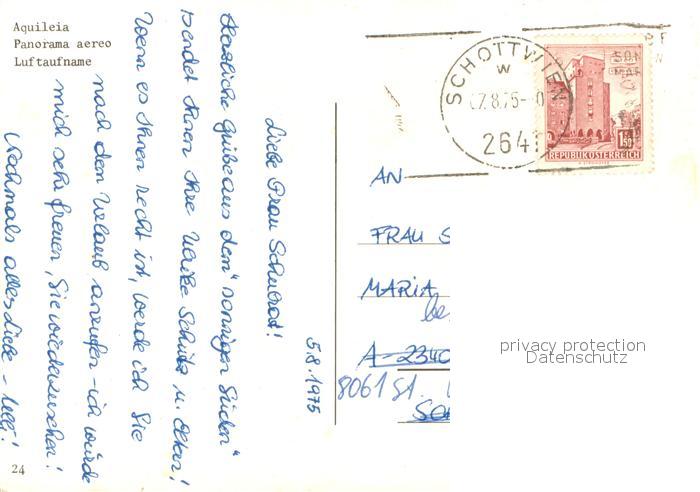 Aquileia
Panorama aereo
Luftaufname
5.8.1975
Liebe Frau Schulrat!
Herzliche Grüße aus dem "sonnigen Süden"
sendet Ihnen Ihre Ulrike Schütz u. Eltern!
Wenn es Ihnen recht ist, werde ich Sie
nach dem Urlaub anrufen - ich würde
mich sehr freuen, Sie wiederzusehen!
Nochmals alles Liebe -
24
SCHOTTWIEN
W
7.8.75
264
1.50
REPUBLIK ÖSTERREICH
AN
FRAU S
MARIA
be
A-2340
8061 St.
privacy protection
Datenschutz